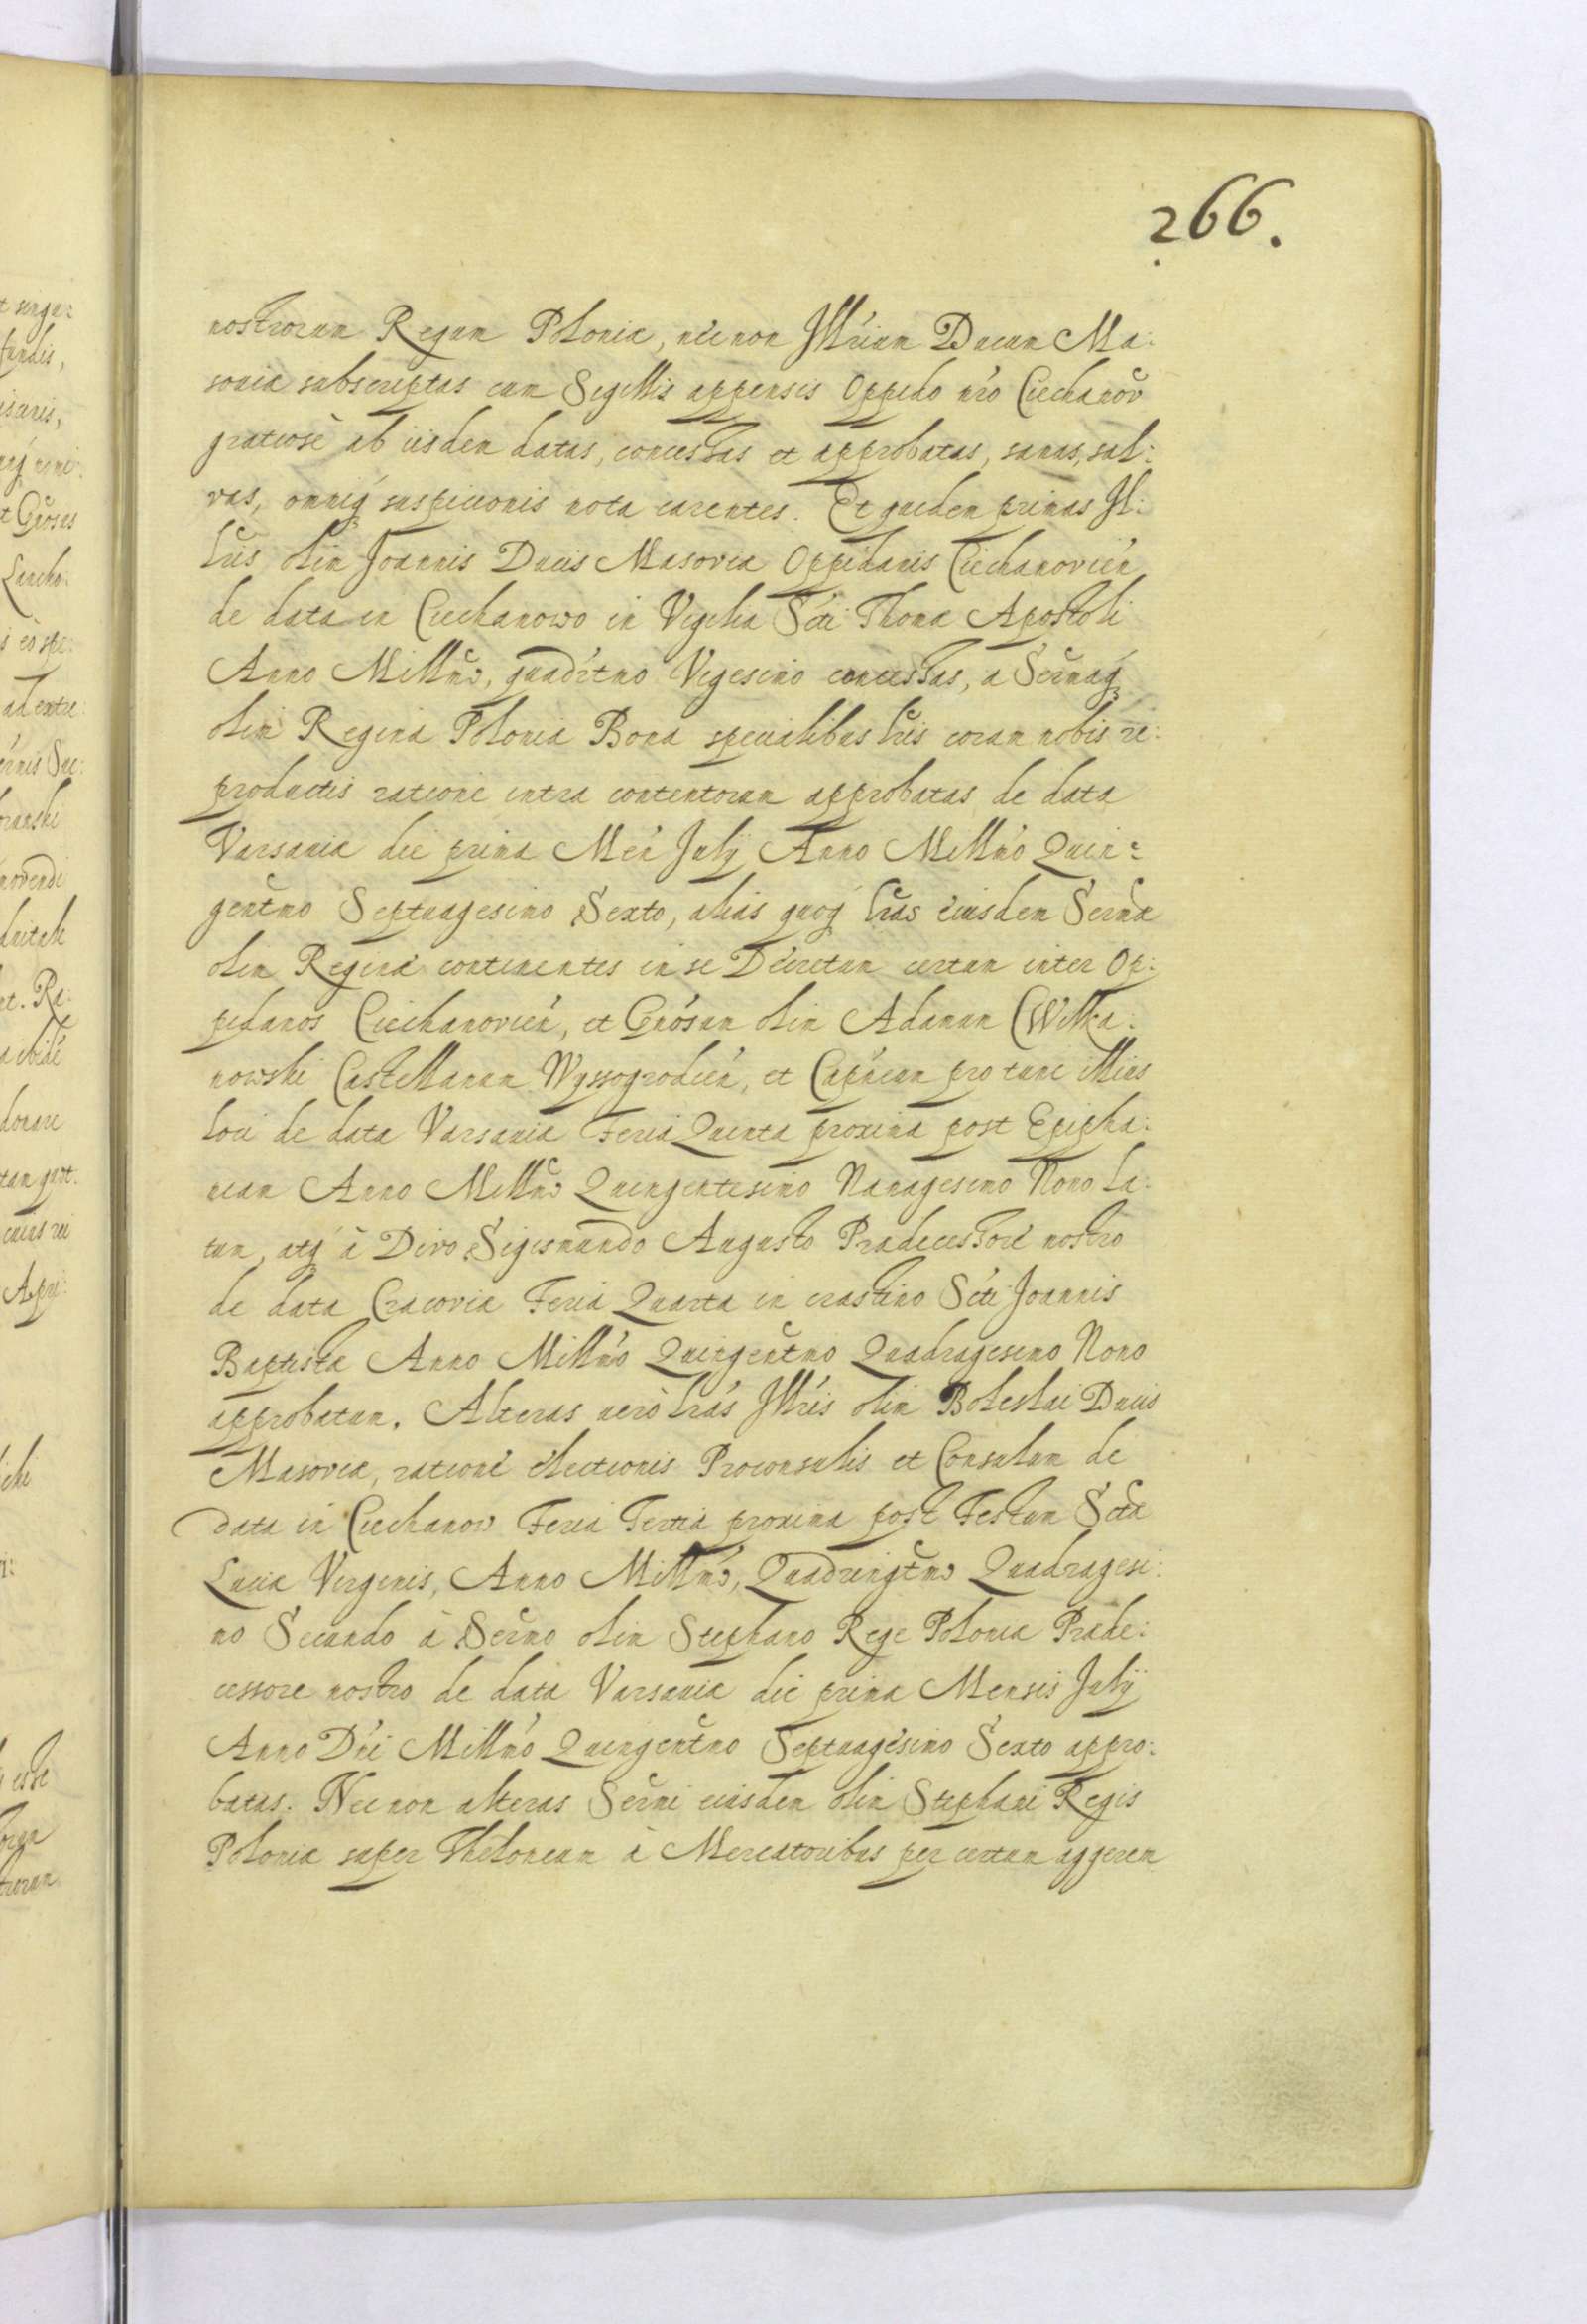 266.
nostrorum Regum Poloniæ, nec non Jllr̃ium Ducum Ma:
souiæ subscriptas cum Sigillis appensis Oppido nr̃o Ciechanov̆
gratiosè ab iisdem datas, concessas et approbatas, sanas, sal:
vas, omniq́ suspicionis nota carentes. Et quidem primas Jl:
lris olim Joannis Ducis Masoviæ Oppidanis Ciechanovień
de data in Ciechanowo in Vigilia Scti Thomæ Apostoli
Anno Millmo, quadrtmo Vigesimo concessas, a Sermaq́
olim Regina Poloniæ Bona specialibus lris coram nobis re:
productis ratione intra contentorum approbatas de data
Varsaviæ die prima Meń July Anno Millmo Quin:
gentmo Septuagesimo Sexto, alias quoq́ lras eiusdem Sermæ
olim Reginæ continentes in se Decretum certum inter Op:
pidanos Ciechanovień, et Gnosum olim Adamum Wilka:
nowski Castellanum Wyssogrodień, et Capneum pro tunc illius
loci de data Varsaviæ Feria Quinta proxima post Epipha:
niam Anno Millmo Quingentesimo Nanagesimo Nono la:
tum, atq́ à Divo Sigismundo Augusto Prædecessore nostro
de data Cracoviæ Feria Quarta in crastino Scti Joannis
Baptistæ Anno Millmo Quingentmo Quadragesimo Nono
approbatum. Alteras uerò lras Jllris olim Boleslai Ducis
Masoviæ, ratione electionis Proconsulis et Consulum de
data in Ciechanow Feria Tertia proxima post Festum Sctæ
Luciæ Virginis, Anno Millmo, Quadringtmo Quadragesi:
mo Secundo à Sermo olim Stephano Rege Poloniæ Præde:
cessore nostro de data Varsaviæ die prima Mensis July
Anno Dńi Millmo Quingentmo Septuagesimo Sexto appro:
batas. Nec non alteras Sermi eiusdem olim Stephani Regis
Poloniæ super Theloneum à Mercatoribus per certum aggerem